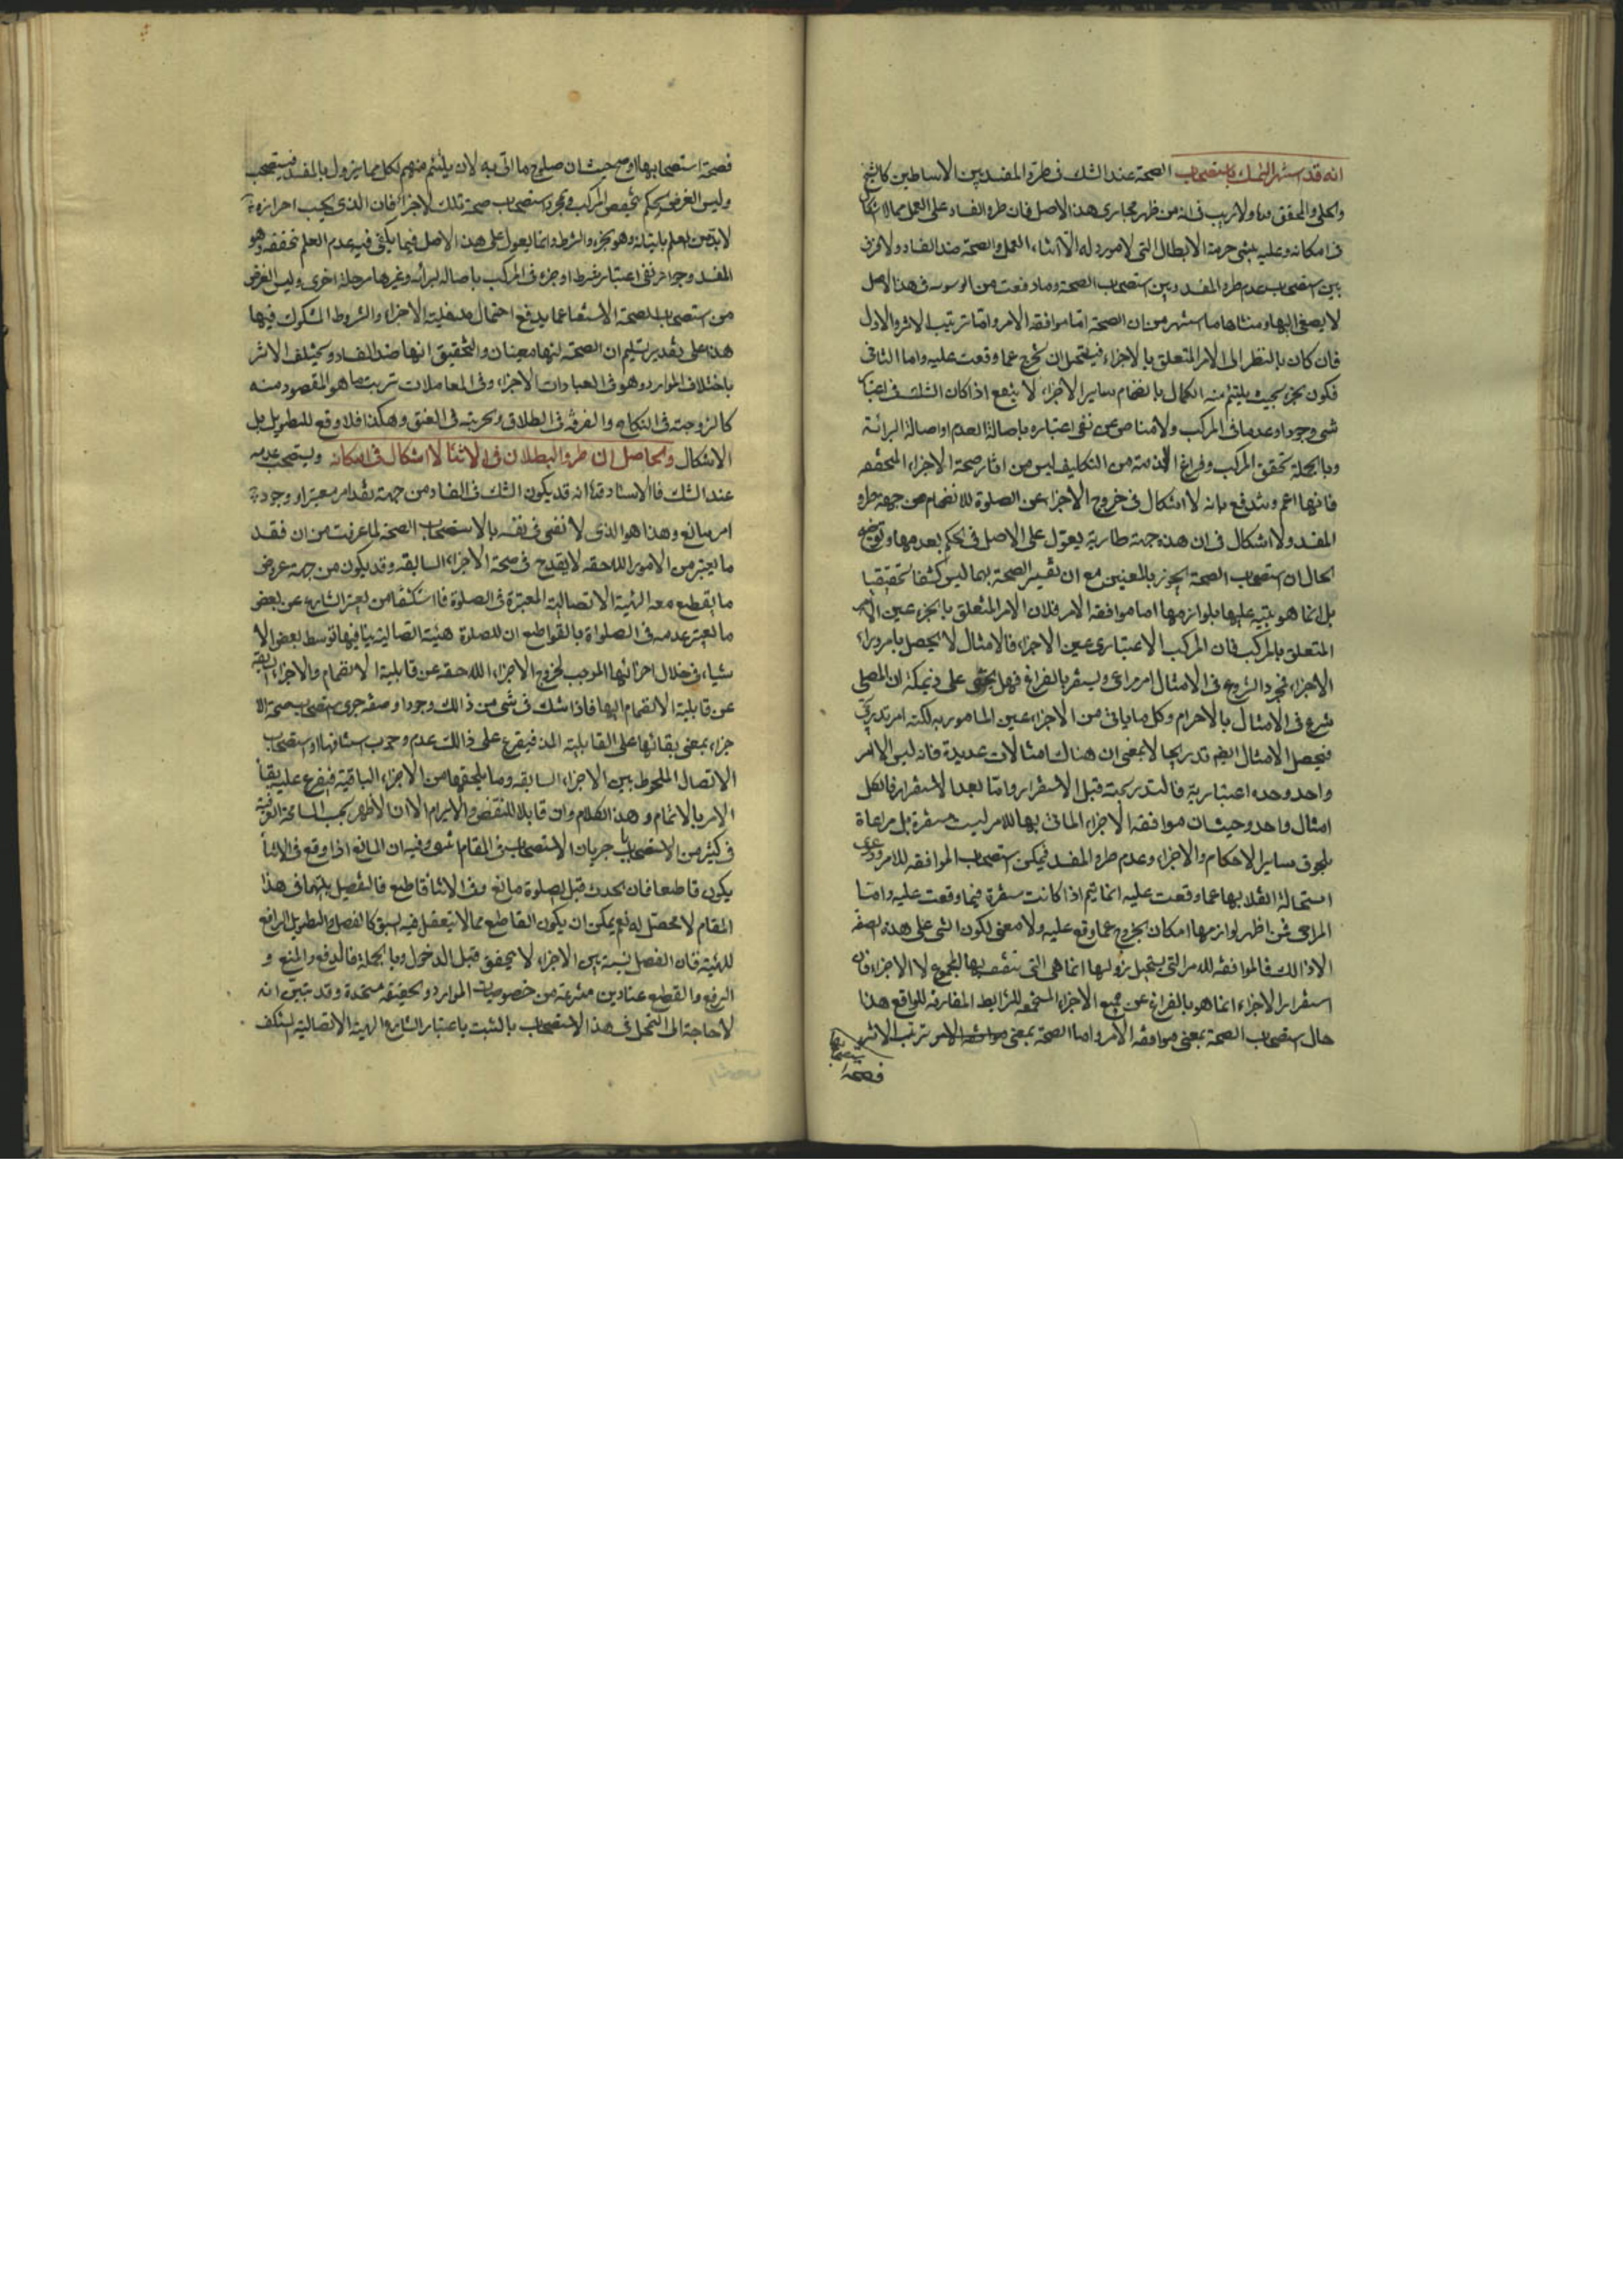 انه قد اشتهر التمسك باستصحاب الصحة عند الشك فى طرو المفسد بين الاساطين كالشيخ
والحلى والمحقق ولا ريب فى انه من ظهر مجارى هذا الاصل فان طرو الفساد على العمل مما لا اشكال
فى امكانه وعليه يبتنى حرمة الابطال التى لا مورد له الا اثناء العمل والصحة ضد الفساد ولا فرق
بين استصحاب عدم طرو المفسد وبين استصحاب الصحة وما دفعت من الوسوسه فى هذا الاصل
لا يصغى اليها ومنشاها ما اشتهر من ان الصحة اما موافقة الامر واما ترتيب الاثر والاول
فان كان بالنظر الى الامر المتعلق بالاجزاء فيستحيل ان تخرج عما وقعت عليه واما الثانى
فكون الجزء بحيث يلتئم منه الكمال بانضمام ساير الاجزاء لا ينفع اذا كان الشك فى اعتبار
شى وجودا وعدما فى المركب ولا مناص عن نفى اعتباره باصالة العدم او اصالة البرائة
وبالجملة تحقق المركب وفراغ الذمة من التكليف ليس من اثار صحة الاجزاء المتحققه
فانها اعم ويندفع بانه لا اشكال فى خروج الاجزاء عن الصلوة للانضمام من جهة طرو
المفسد ولا اشكال فى ان هذه جهة طارية يعول على الاصل فى الحكم بعدمها وتوضيح
الحال ان استصحاب الصحة يجوز بالمعنيين مع ان تفسير الصحة بهما ليس كشفا تحقيقيا
بل انما هو تنبيه عليها بلوازمها اما موافقة الامر فلان الامر المتعلق بالجزء عين الامر
المتعلق بالمركب فان المركب الاعتبارى عين الاجزاء فالامتثال لا يحصل بامر وراء
الاجزاء فمجرد الشروع فى الامتثال امر مراعى ويستقر بالفراغ فهل يخفى على ذى مسكة ان المصلى
شرع فى الامتثال بالاحرام وكل ما ياتى من الاجزاء عين المامور به لكنه امر تدريجى
فيحصل الامتثال ايضا تدريجا لا بمعنى ان هناك امتثالات عديدة فانه ليس الا امر
واحد وحده اعتبارية فالتدريجية قبل الاستقرار واما بعد الاستقرار فالكل
امتثال واحد وحيث ان موافقة الاجزاء الماتى بها للامر ليست مستقرة بل مراعاة
بلحوق ساير الاحكام والاجزاء وعدم طرو المفسد فيمكن استصحاب الموافقة للامر ودعوى
استحالة انقلابها عما وقعت عليه انما يتم اذا كانت مستقرة فيما وقعت عليه واما
المراعى فمن اظهر لوازمها امكان الخروج عما وقع عليه ولا معنى لكون الشى على هذه الصفة
الا ذالك فالموافقه للامر التى يستحيل زوالها انما هى التى تتصف بها المجموع لا الاجزاء فان
استقرار الاجزاء انما هو بالفراغ عن جميع الاجزاء المستجمعة للشرايط المقارنه للواقع هذا
حال استصحاب الصحة بمعنى موافقه الامر واما الصحة بمعنى ترتب الاثر
فصحة
فصحة استصحابها اوضح حيث ان صلوح ما اتى به لان يلتئم منهم الكل مما يزول بالمفسد فيستصحب
وليس الغرض الحكم بتحقق المركب بمجرد استصحاب صحة تلك الاجزاء فان الذى يجب احرازه
لا بد من العلم باتيانه وهو الجزء والشرط وانما يعول على هذا الاصل فيما يكفى فيه عدم العلم بتحققه وهو
المفسد وجواز نفى اعتبار شرط او جزء فى المركب باصالة البرائة وغيرها مرحلة اخرى وليس الغرض
من استصحاب الصحة الاستغناء عما يدفع احتمال مدخلية الاجزاء والشروط المشكوك فيها
هذا على تقدير تسليم ان الصحة لها معنيان والتحقيق انها ضد الفساد ويختلف الاثر
باختلاف الموارد وهو فى العبادات الاجزاء وفى المعاملات ترتب ما هو المقصود منه
كالزوجية فى النكاح والفرقة فى الطلاق والحرية فى العتق وهكذا فلا وقع للتطويل بل
الاشكال والحاصل ان طرو البطلان فى الاثناء لا اشكال فى امكانه ويستصحب عدمه
عند الشك قال الاستاد قده انه قد يكون الشك فى الفساد من جهة فقد امر معتبر او وجود
امر مانع وهذا هو الذى لا نفى فى نفسه بالاستصحاب الصحة لما عرفت من ان فقد
ما يعتبر من الامور اللاحقه لا يقدح فى صحة الاجزاء السابقه وقد يكون من جهة عروض
ما ينقطع معه الهيئة الاتصالية المعتبرة فى الصلوة فانا استكشفنا من تعبير الشارع عن بعض
ما يعتبر عدمه فى الصلواة بالقواطع ان للصلوة هيئة اتصالية ينافيها توسط بعض الا
شياء فى خلال اجزائها الموجب لخروج الاجزاء اللاحقه عن قابلية الانضمام والاجزاء السابقة
عن قابلية الانضمام اليها فاذا شك فى شى من ذالك وجودا وصفه جرى استصحاب صحة الا
جزاء بمعنى بقائها على القابلية فيتفرع على ذالك عدم وجوب استينافها او استصحاب
الاتصال الملحوظ بين الاجزاء السابقه وما يلحقها من الاجزاء الباقية فيتفرع عليه بقاء
الامر بالاتمام وهذا الكلام وان قابلا للنقض والابرام الا ان الاظهر بحسب المسامحة العرفية
فى كثير من الاستصحابات جريان الاستصحاب فى المقام انتهى وفيه ان المانع اذا وقع فى الاثناء
يكون قاطعا فان الحدث قبل الصلوة مانع وفى الاثناء قاطع فالتفصيل بينهما فى هذا
المقام لا محصل له نعم يمكن ان يكون القاطع مما لا يتعقل فيه السبق كالفصل والتطويل الرافع
للهيئة فان الفصل نسبة بين الاجزاء لا يتحقق قبل الدخول وبالجملة فالدفع والمنع و
الرفع والقطع عناوين منتزعة من خصوصيات الموارد والحقيقه متحدة وقد تبين انه
لا حاجة الى التمحل فى هذا الاستصحاب بالتشبث باعتبار الشارع الهيئة الاتصالية المستكشف